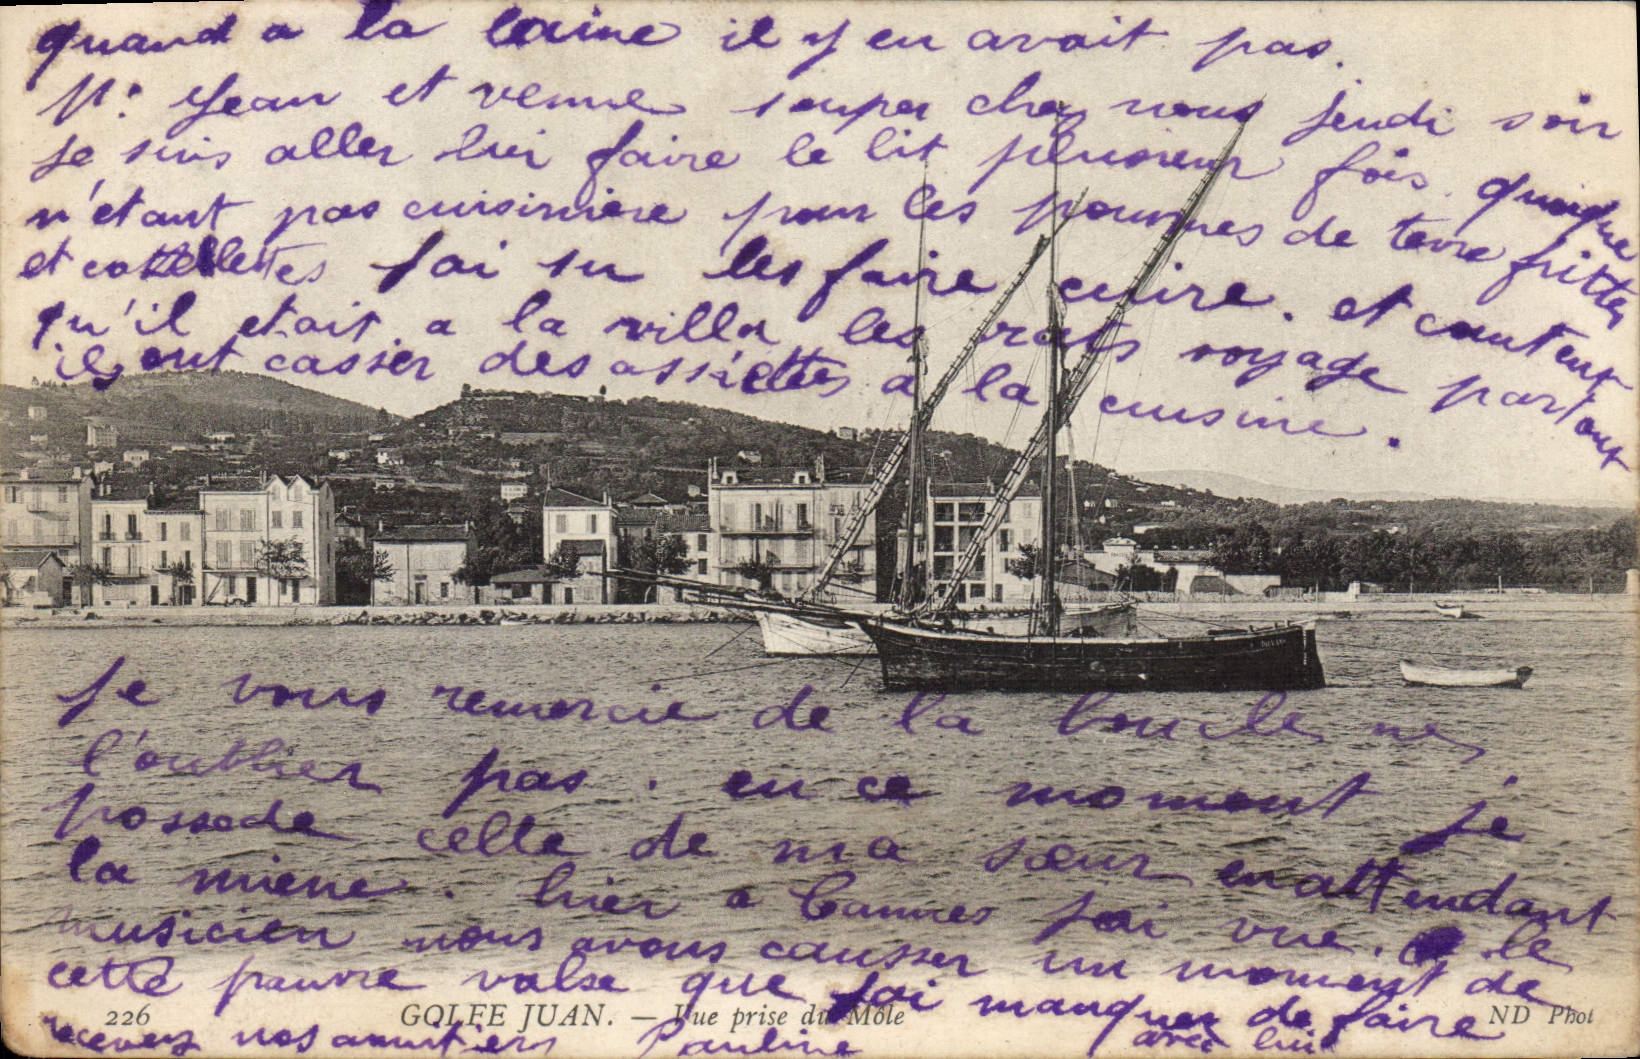 quand a la laine il y en avait pas.
Mr Jean et venue souper chez nous jeudi soir
je suis aller lui faire le lit plusieur fois. quoique
n'etant pas cuisiniere pour les pommes de terre frittes
et cottelettes j'ai su les faire cuire. et contents
qu'il etait a la villa les rats voyage partout
ils ont casser des assiettes a la cuisine.
je vous remercie de la boucle ne
l'oublier pas. en ce moment je
possede celle de ma sœur en attendant
la miene. hier a Cannes j'ai vue. le
musicien nous avons causser un moment de
cette pauvre valse que j'ai manquer de faire
avec lui
226 GOLFE JUAN. — Vue prise du Môle ND Phot
recevez nos amitiers Pauline